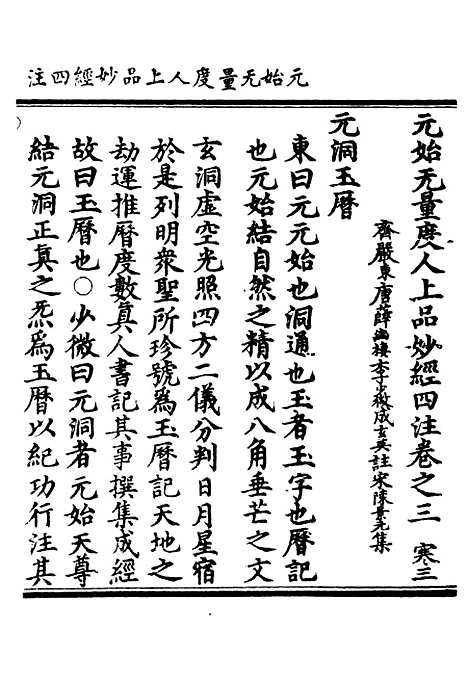 元始无量度人上品妙經四注
元始无量度人上品妙經四注卷之三 寒三
齊嚴東唐薛幽棲李少微成玄英註宋陳景元集
元洞玉曆
東曰元元始也洞通也玉者玉字也曆記
也元始結自然之精以成八角垂芒之文
玄洞虛空光照四方二儀分判日月星宿
於是列明衆聖所珍號為玉曆記天地之
劫運推曆度數真人書記其事撰集成經
故曰玉曆也○少微曰元洞者元始天尊
結元洞正真之炁為玉曆以紀功行注其